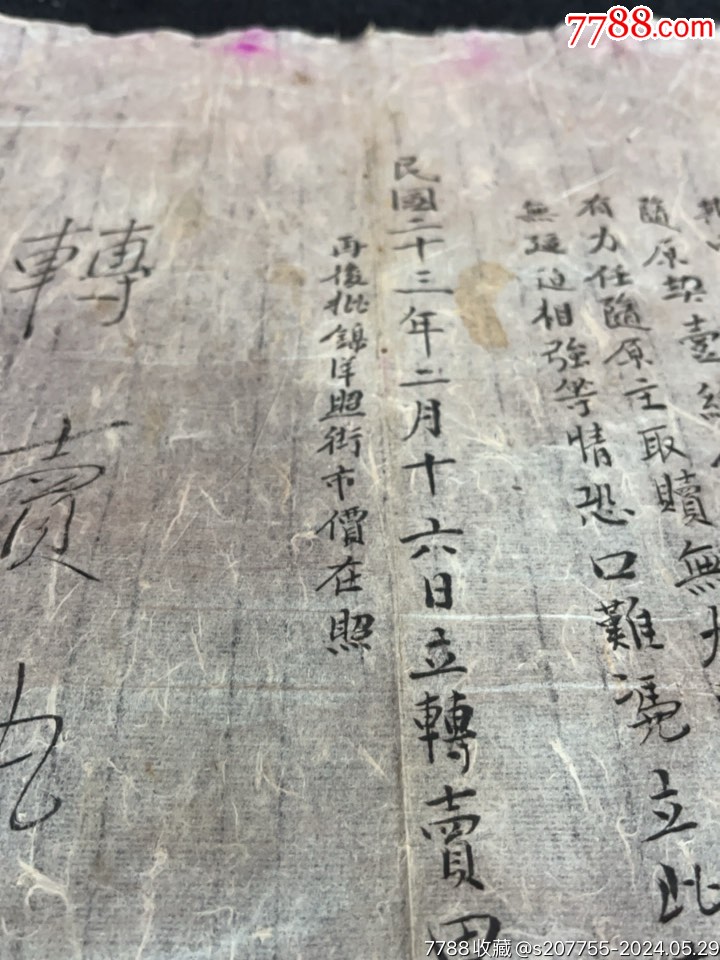 7788.com
隨原契壹紙
有力任隨原主取贖無
無逼迫相強等情恐口難憑立此
民國二十三年二月十六日立轉賣田
再後批錦洋照街市價在照
轉賣
7788收藏@s207755-2024.05.29